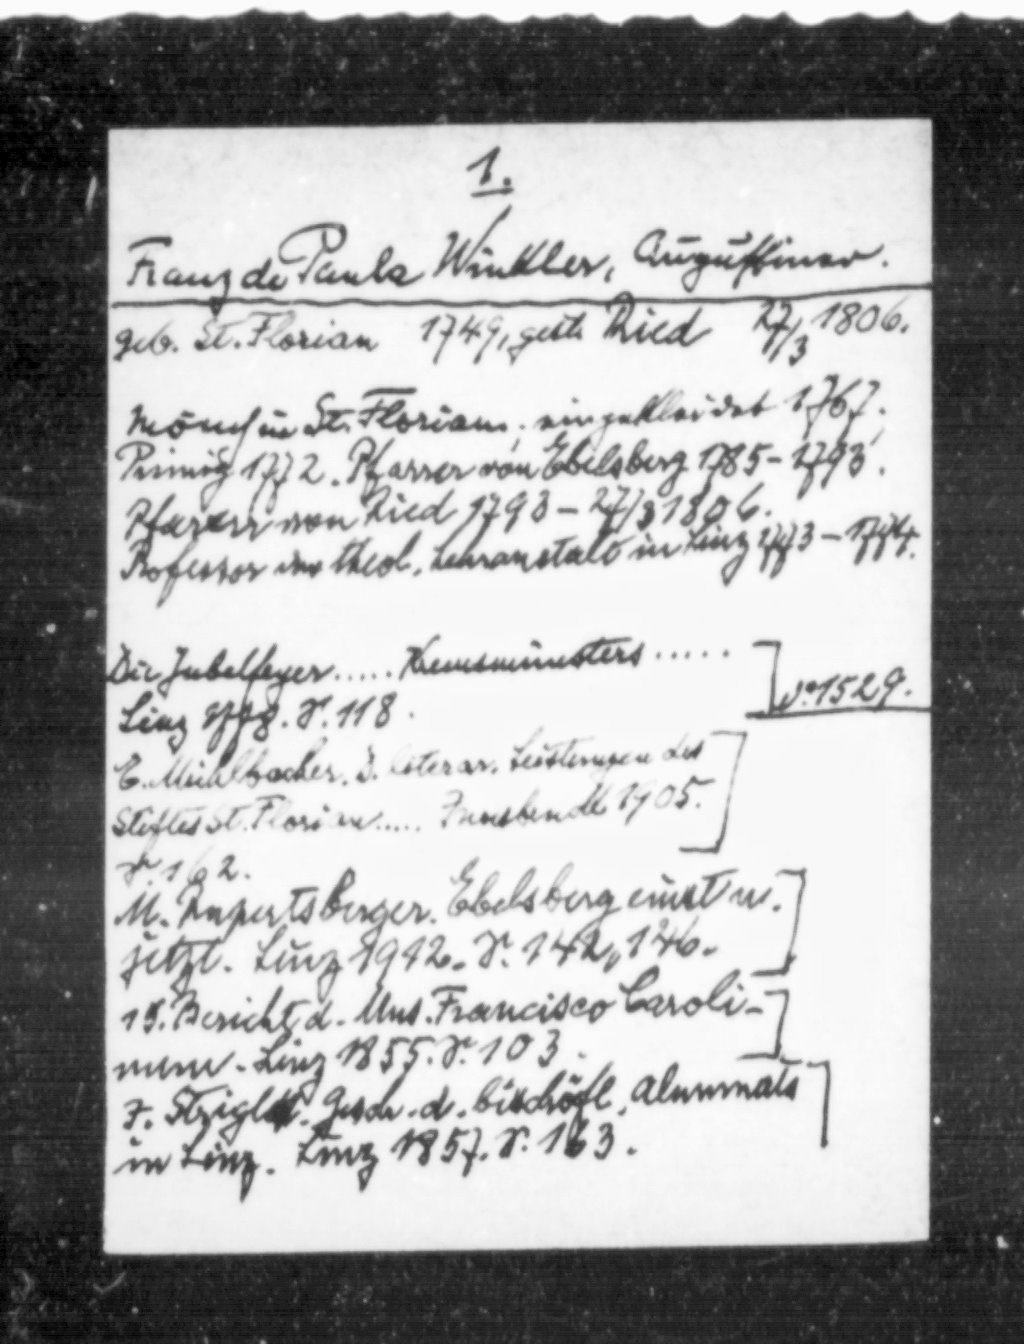 1.
Franz de Paula Winkler, Augustiner.
geb. St. Florian 1749, gest. Ried 27/3 1806.
Mönch in St. Florian, eingekleidet 1767.
Primiz 1772. Pfarrer von Ebelsberg 1785-1793.
Pfarrer von Ried 1793 - 27/3 1806.
Professor der theol. Lehranstalt in Linz 1773-1774.
Die Jubelfeyer..... Kremsmünsters .....
No. 1529.
Linz S. 118.
E. Mühlbacher. D. literar. Leistungen des
Stiftes St. Florian..... Innsbruck 1905.
S. 162.
M. Rupertsberger. Ebelsberg einst u.
jetzt. Linz 1912. S. 142, 146.
15. Bericht d. Mus. Francisco Caroli-
num. Linz 1855. S. 103.
Gesch. d. bischöfl. Alumnats
in Linz. Linz 1857. S. 163.